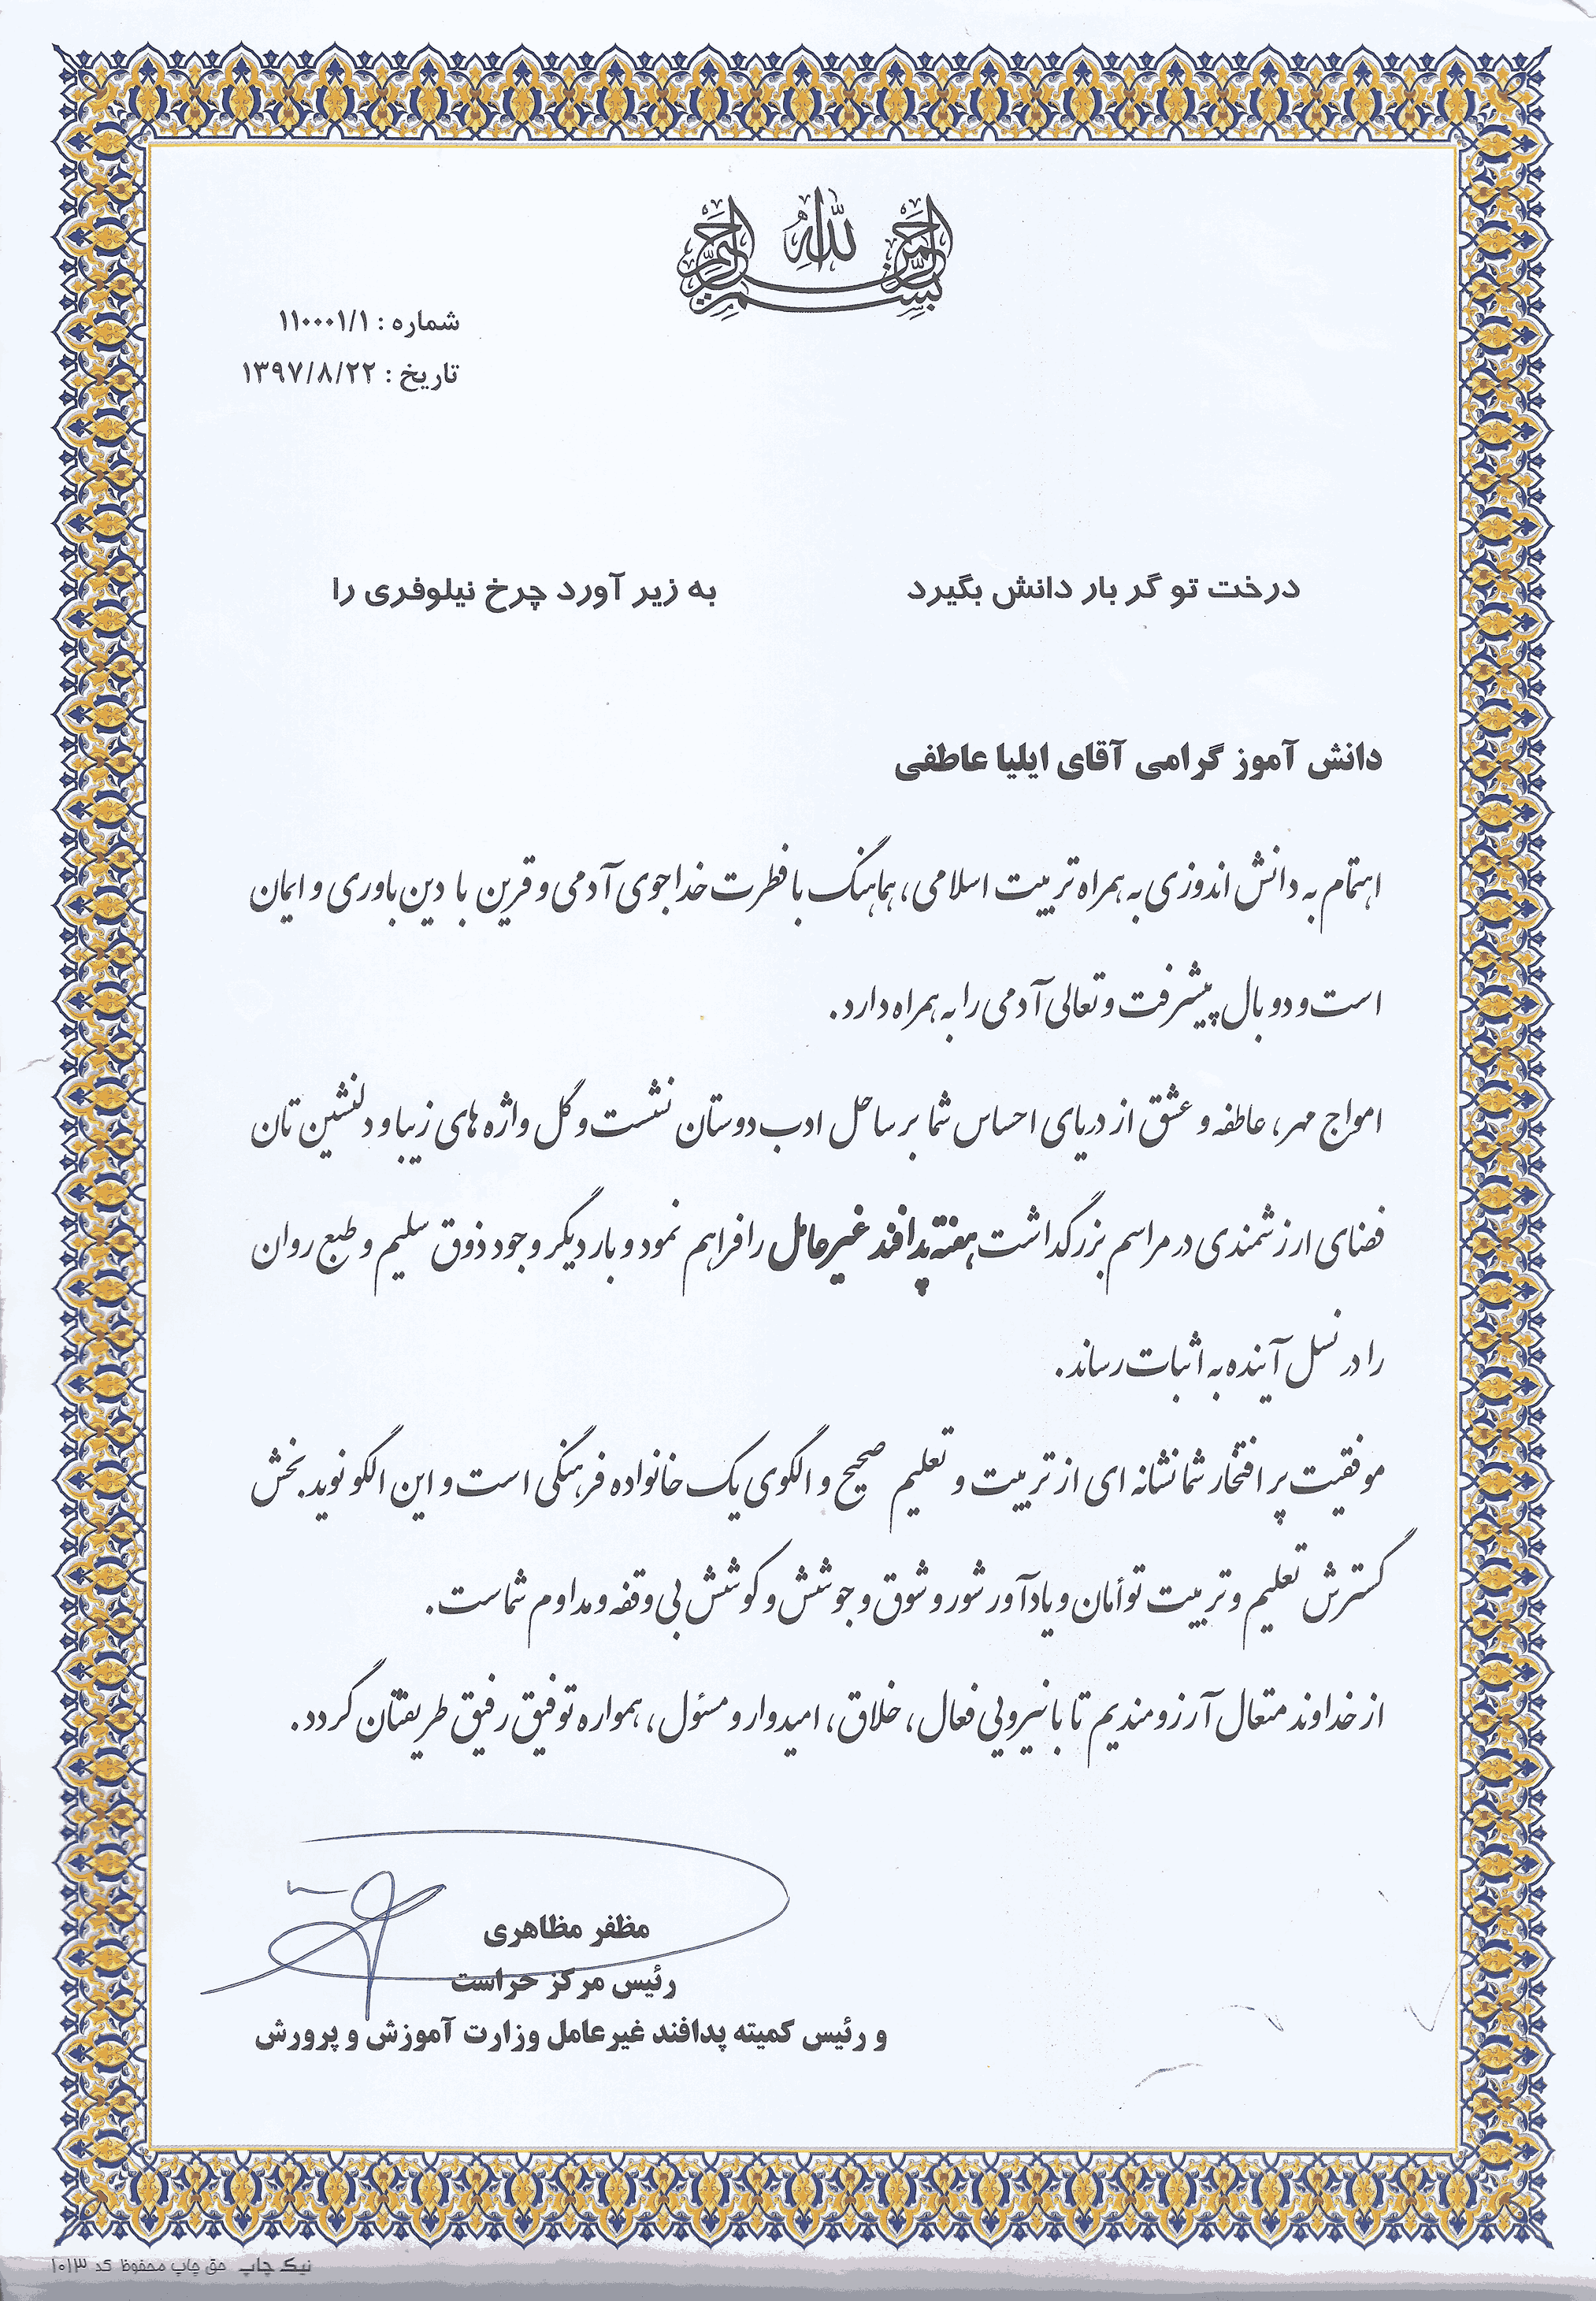 بسم الله الرحمن الرحیم
شماره : ۱۱۰۰۰۱/۱
تاریخ : ۱۳۹۷/۸/۲۲
درخت تو گر بار دانش بگیرد به زیر آورد چرخ نیلوفری را
دانش آموز گرامی آقای ایلیا عاطفی
اهتمام به دانش اندوزی به همراه تربیت اسلامی، هماهنگ با فطرت خداجوی آدمی و قرین با دین باوری و ایمان
است و دو بال پیشرفت و تعالی آدمی را به همراه دارد.
امواج مهر، عاطفه و عشق از دریای احساس شما بر ساحل ادب دوستان نشست و گل واژه های زیبا و دلنشین تان
فضای ارزشمندی در مراسم بزرگداشت هفته پدافند غیرعامل را فراهم نمود و بار دیگر وجود ذوق سلیم و طبع روان
را در نسل آینده به اثبات رساند.
موفقیت پر افتخار شما نشانه ای از تربیت و تعلیم صحیح و الگوی یک خانواده فرهنگی است و این الگو نوید بخش
گسترش تعلیم و تربیت توأمان و یادآور شور و شوق و جوشش و کوشش بی وقفه و مداوم شماست.
از خداوند متعال آرزومندیم تا با نیرویی فعال، خلاق، امیدوار و مسئول، همواره توفیق رفیق طریقتان گردد.
مظفر مظاهری
رئیس مرکز حراست
و رئیس کمیته پدافند غیرعامل وزارت آموزش و پرورش
نیک چاپ حق چاپ محفوظ کد ۱۰۱۳